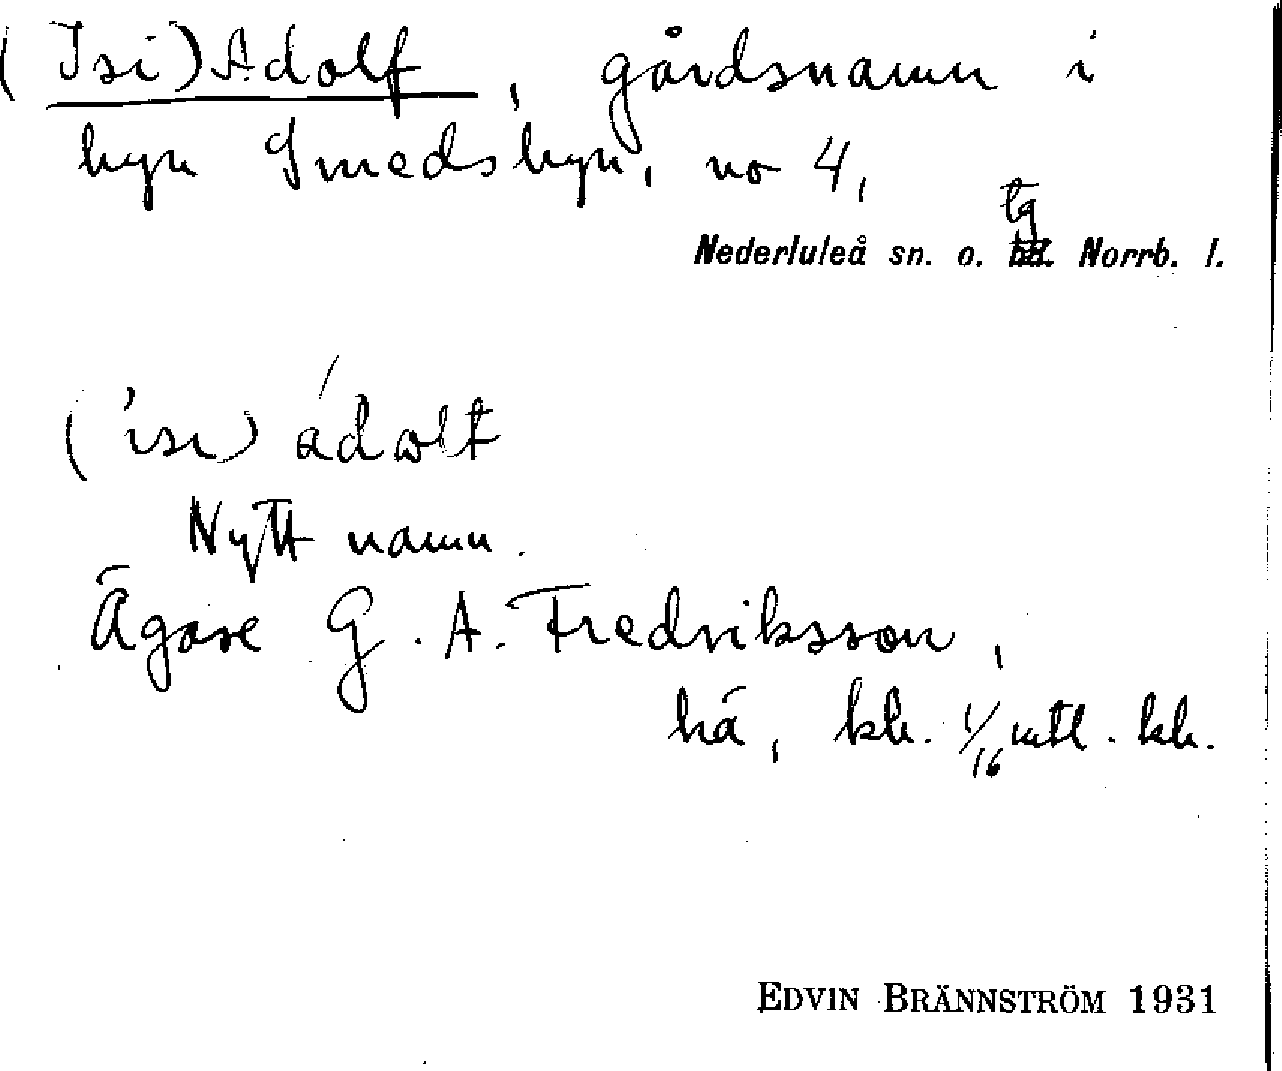 (Isi)Adolf, gårdsnamn i
byn Smedsbyn, no 4,
tg
Nederluleå sn. o. Norrb. l.
(ísi) ádolf
Nytt namn.
Ägare G. A. Fredriksson,
bä, kh. 1/16 mtl. kh.
EDVIN BRÄNNSTRÖM 1931